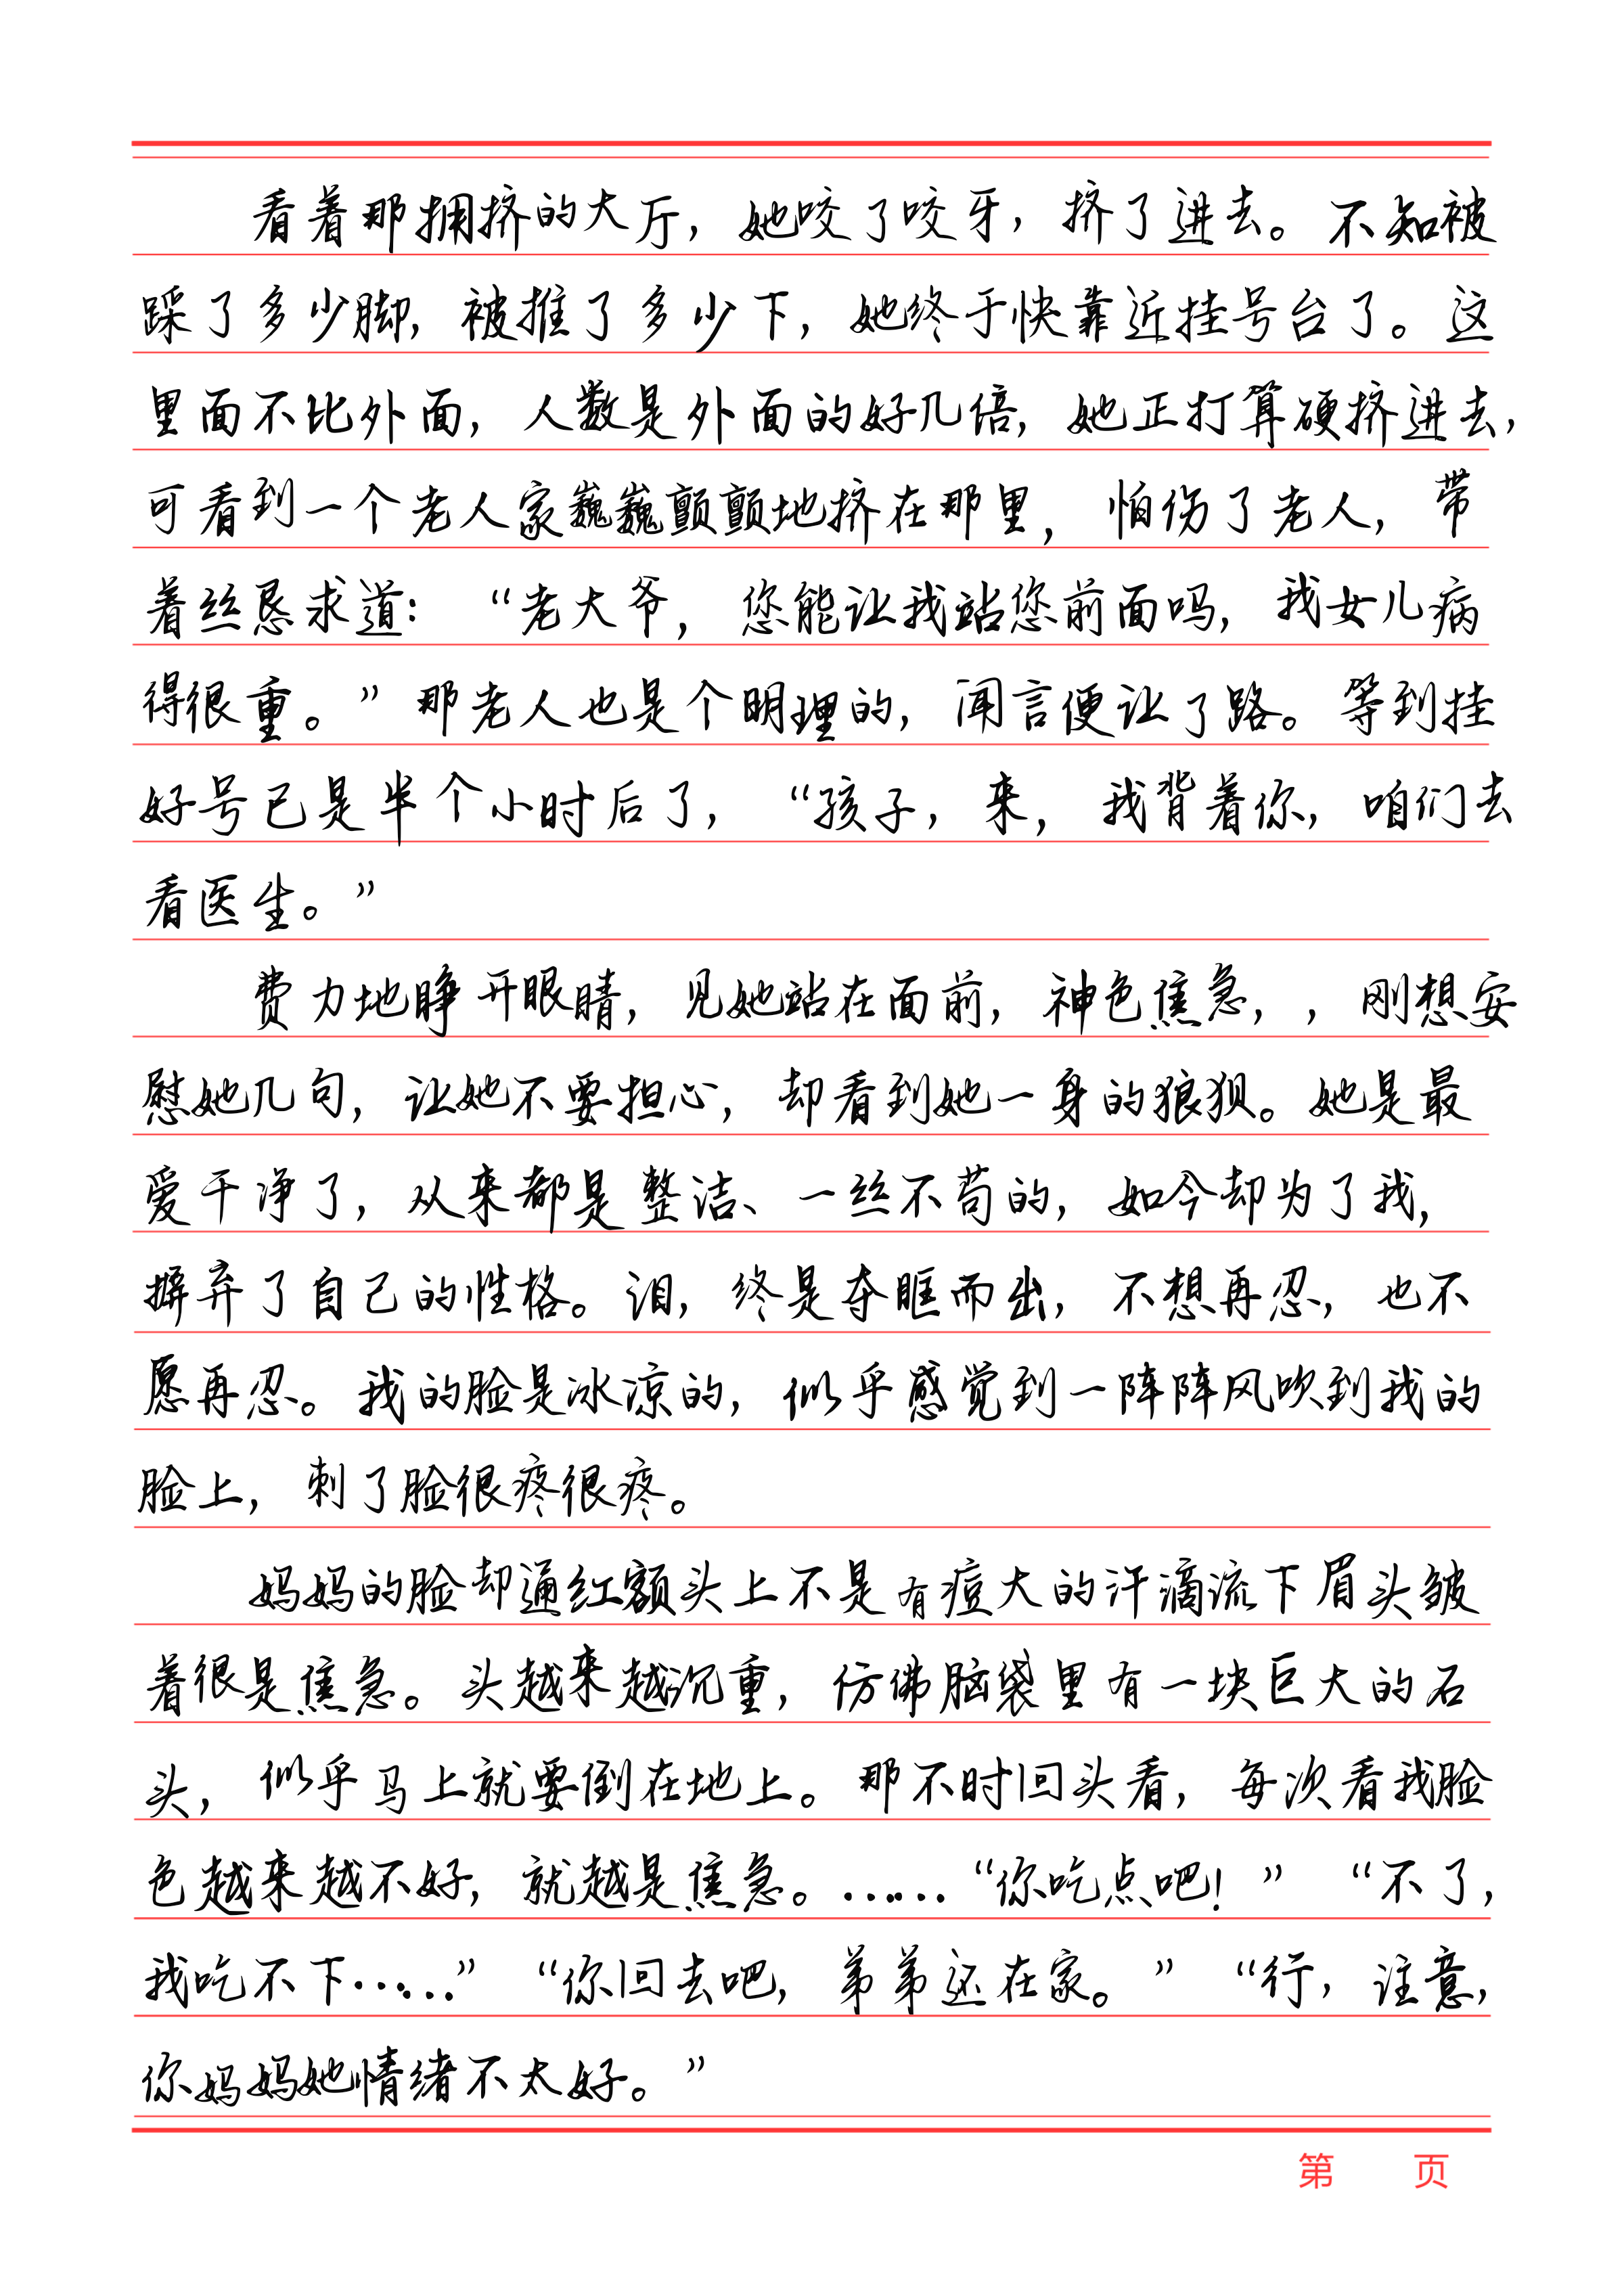 看着那拥挤的大厅，她咬了咬牙，挤了进去。不知被
踩了多少脚，被推了多少下，她终于快靠近挂号台了。这
里面不比外面，人数是外面的好几倍，她正打算硬挤进去，
可看到一个老人家巍巍颤颤地挤在那里，怕伤了老人，带
着丝恳求道：“老大爷，您能让我站您前面吗，我女儿病
得很重。”那老人也是个明理的，闻言便让了路。等到挂
好号已是半个小时后了，“孩子，来，我背着你，咱们去
看医生。”
费力地睁开眼睛，见她站在面前，神色焦急，，刚想安
慰她几句，让她不要担心，却看到她一身的狼狈。她是最
爱干净了，从来都是整洁、一丝不苟的，如今却为了我，
摒弃了自己的性格。泪，终是夺眶而出，不想再忍，也不
愿再忍。我的脸是冰凉的，似乎感觉到一阵阵风吹到我的
脸上，刺了脸很疼很疼。
妈妈的脸却通红额头上不是有痘大的汗滴流下眉头皱
着很是焦急。头越来越沉重，仿佛脑袋里有一块巨大的石
头，似乎马上就要倒在地上。那不时回头看，每次看我脸
色越来越不好，就越是焦急。……“你吃点吧！”“不了，
我吃不下……”“你回去吧，弟弟还在家。”“行，注意，
你妈妈她情绪不太好。”
第 页